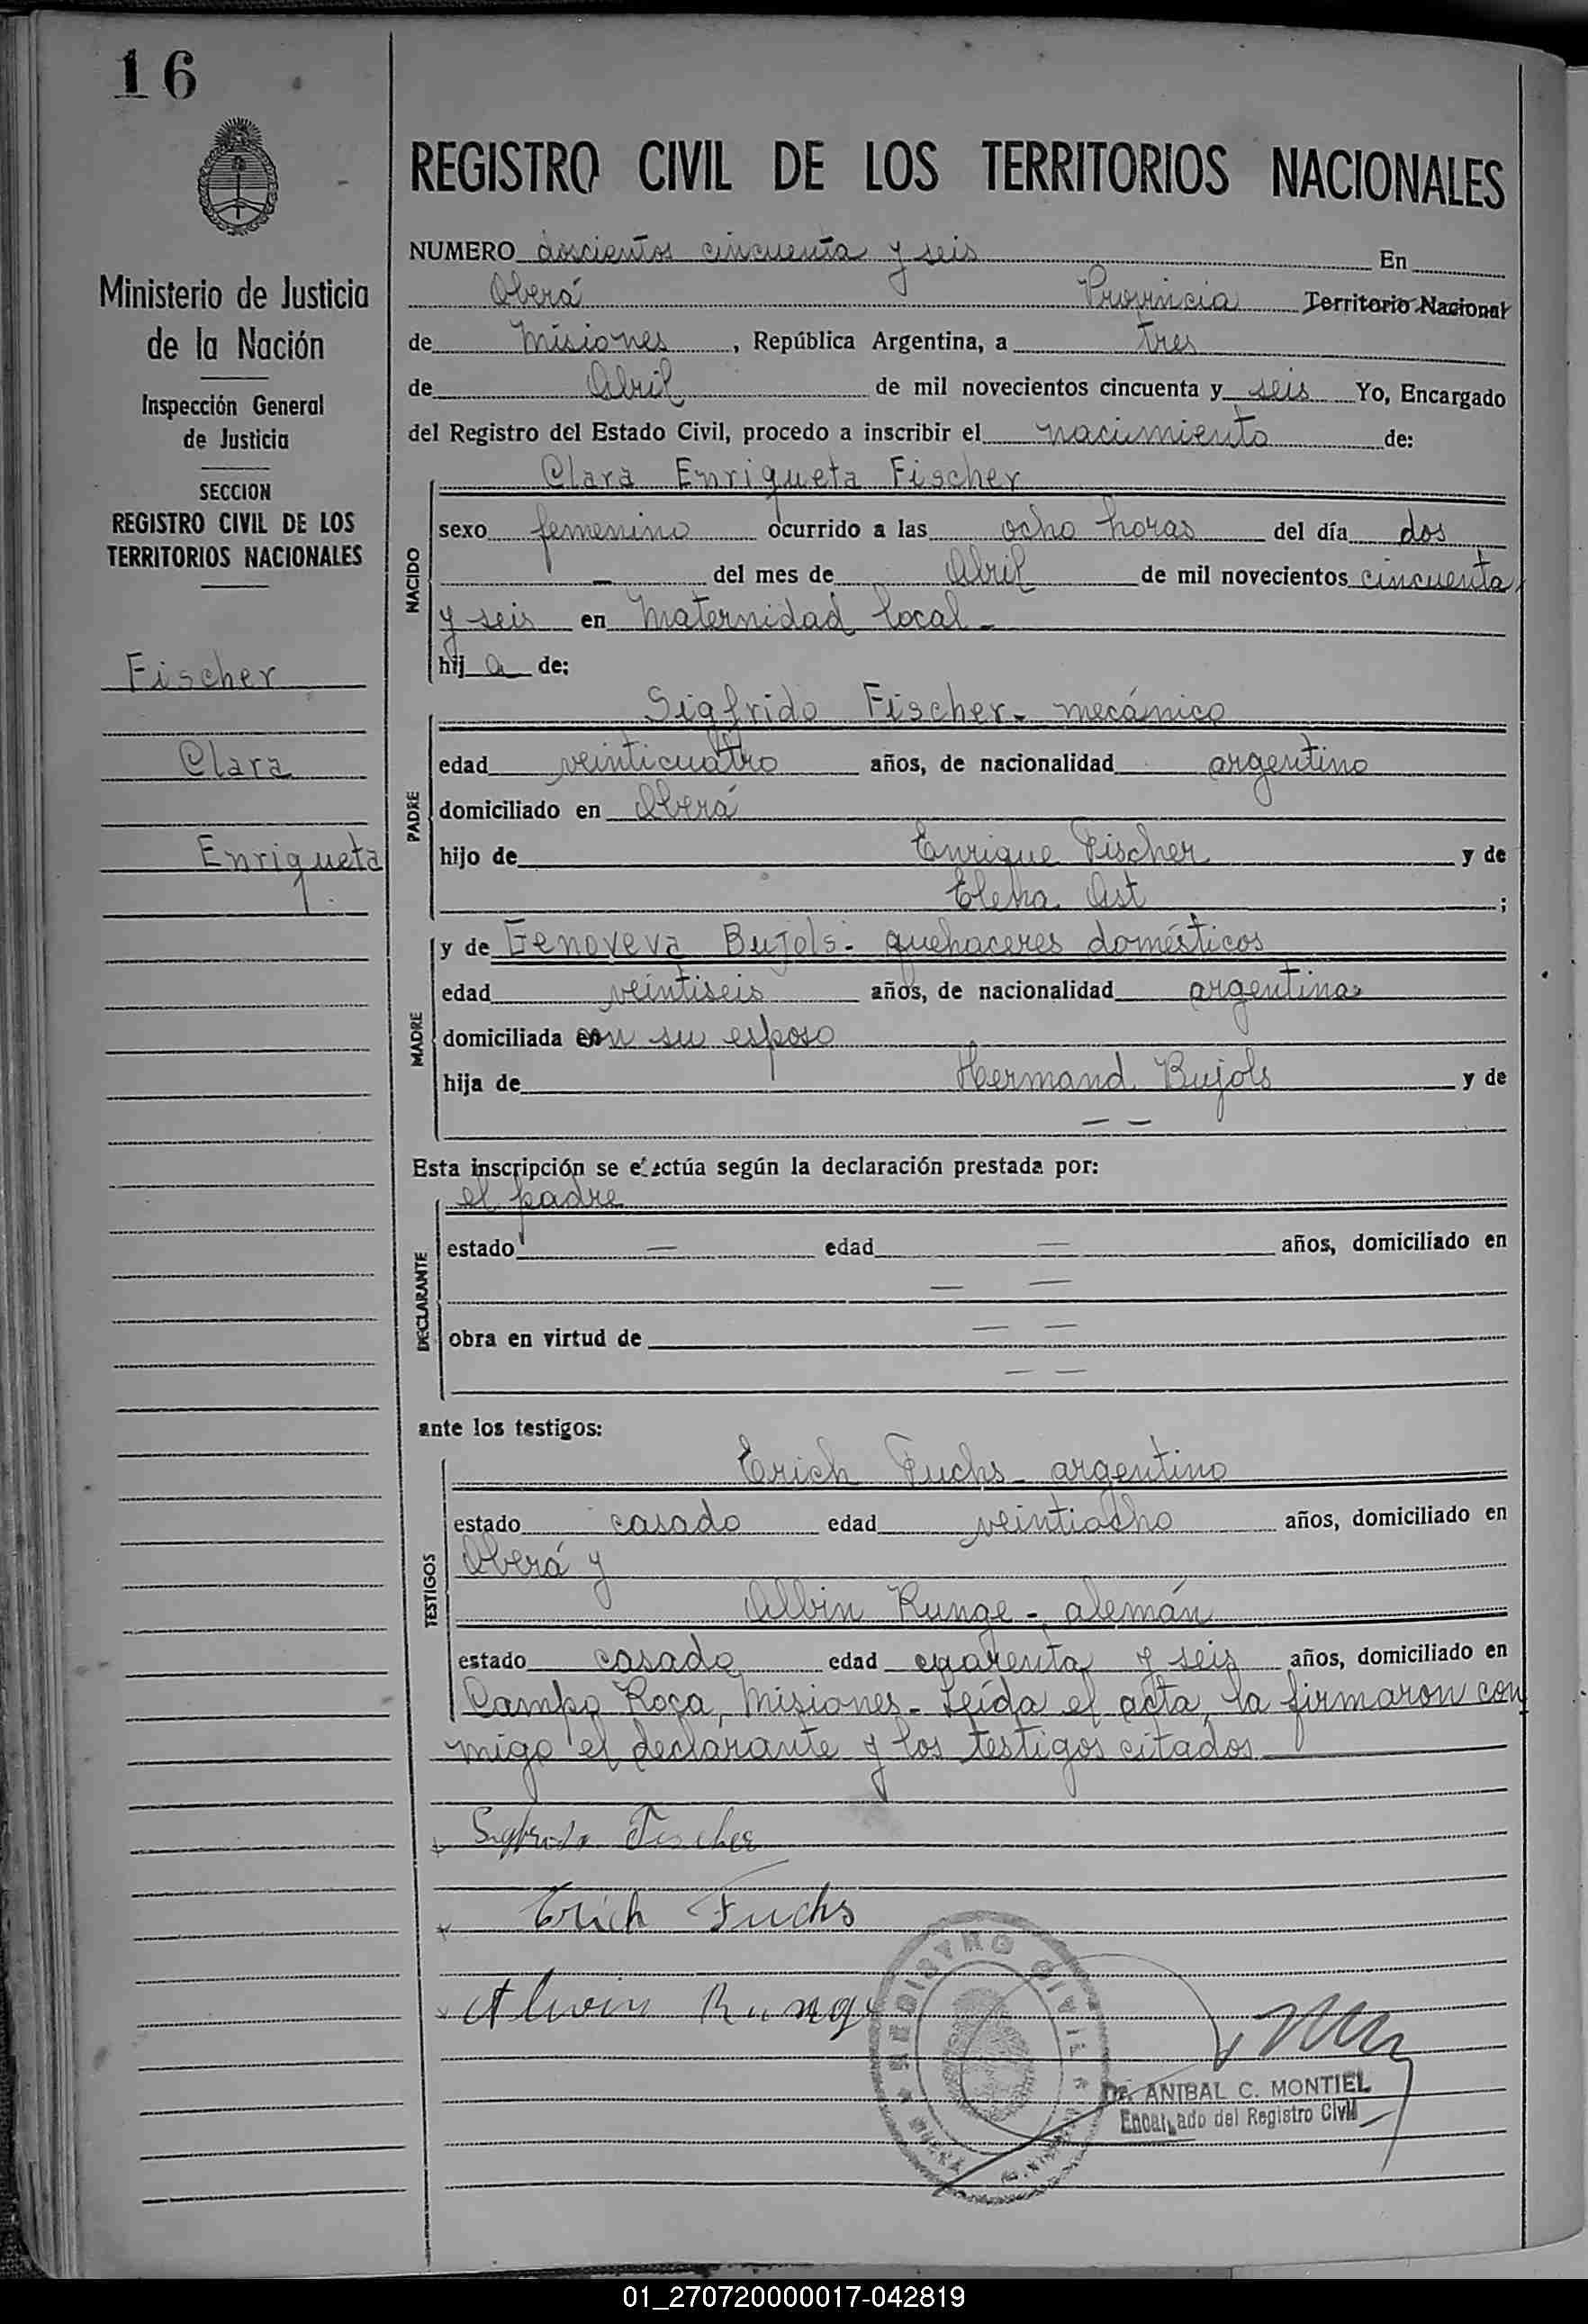 16
Ministerio de Justicia
de la Nación
Inspección General
de Justicia
SECCION
REGISTRO CIVIL DE LOS
TERRITORIOS NACIONALES
Fischer
Clara
Enriqueta
REGISTRO CIVIL DE LOS TERRITORIOS NACIONALES
NUMERO doscientos cincuenta y seis En
Oberá Provincia Territorio Nacional
de Misiones, República Argentina, a tres
de Abril de mil novecientos cincuenta y seis Yo, Encargado
del Registro del Estado Civil, procedo a inscribir el nacimiento de:
NACIDO
Clara Enriqueta Fischer
sexo femenino ocurrido a las ocho horas del día dos
— del mes de Abril de mil novecientos cincuenta
y seis en Maternidad local -
hij a de:
PADRE
Sigfrido Fischer - mecánico
edad veinticuatro años, de nacionalidad argentino
domiciliado en Oberá
hijo de Enrique Fischer y de
Elena Ast ;
MADRE
y de Genoveva Bujols - quehaceres domésticos
edad veintiseis años, de nacionalidad argentina
domiciliada con su esposo
hija de Hermand Bujols y de
— —
Esta inscripción se efectúa según la declaración prestada por:
DECLARANTE
el padre
estado — edad — años, domiciliado en
— —
obra en virtud de — —
— —
ante los testigos:
TESTIGOS
Erich Fuchs - argentino
estado casado edad veintiocho años, domiciliado en
Oberá y
Albin Runge - alemán
estado casado edad cuarenta y seis años, domiciliado en
Campo Roca, Misiones - Leída el acta, la firmaron con
migo el declarante y los testigos citados
Sigfrido Fischer
Erich Fuchs
Alwin Runge
REGISTRO CIVIL
Dr. ANIBAL C. MONTIEL
Encargado del Registro Civil
01_270720000017-042819